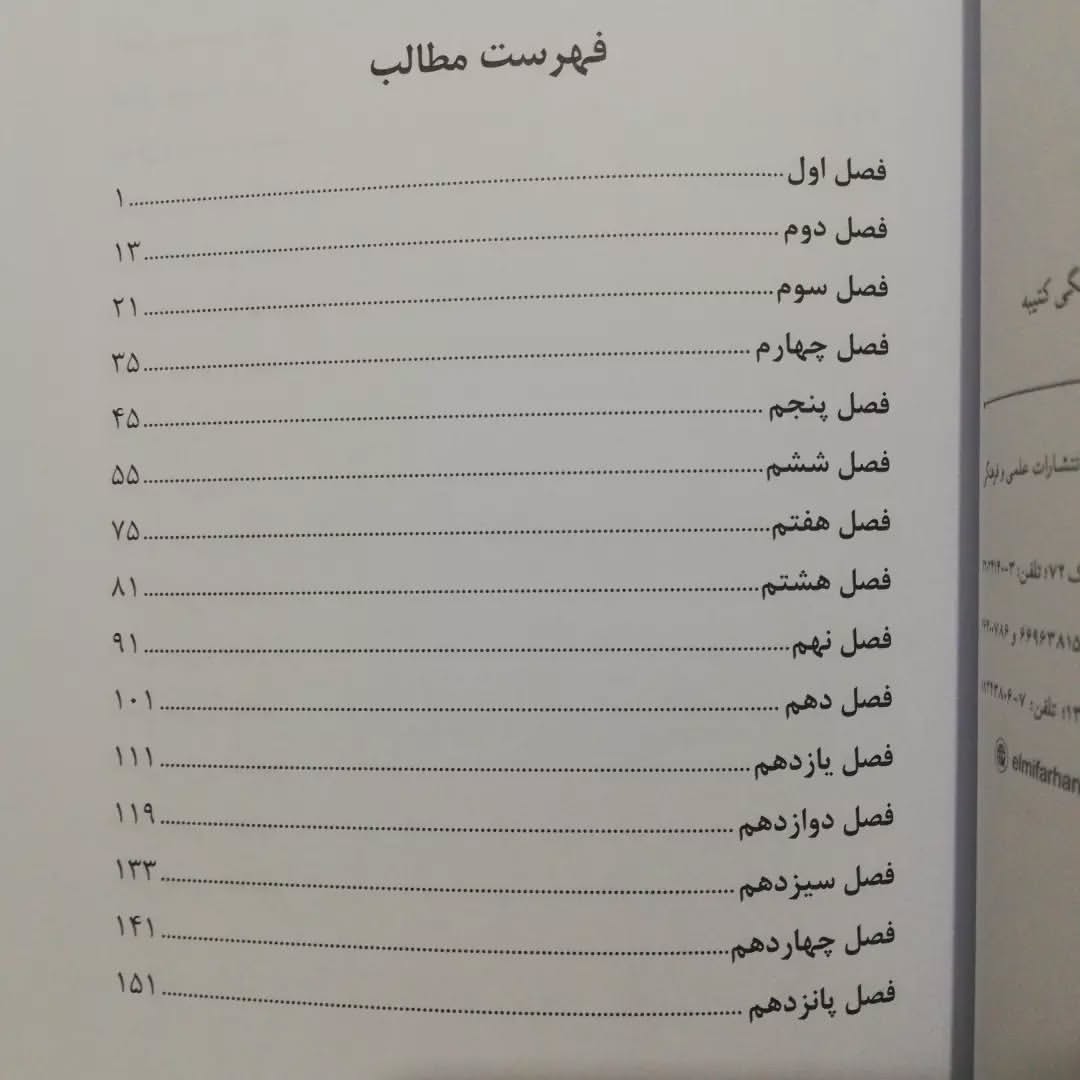 فهرست مطالب
فصل اول ........ ۱
فصل دوم ........ ۱۳
فصل سوم ........ ۲۱
فصل چهارم ........ ۳۵
فصل پنجم ........ ۴۵
فصل ششم ........ ۵۵
فصل هفتم ........ ۷۵
فصل هشتم ........ ۸۱
فصل نهم ........ ۹۱
فصل دهم ........ ۱۰۱
فصل یازدهم ........ ۱۱۱
فصل دوازدهم ........ ۱۱۹
فصل سیزدهم ........ ۱۳۳
فصل چهاردهم ........ ۱۴۱
فصل پانزدهم ........ ۱۵۱
کتیبه
علمی و
۷۲؛ تلفن:
۶۶۹۶۳۸۱۵ و
تلفن:
elmifarhan